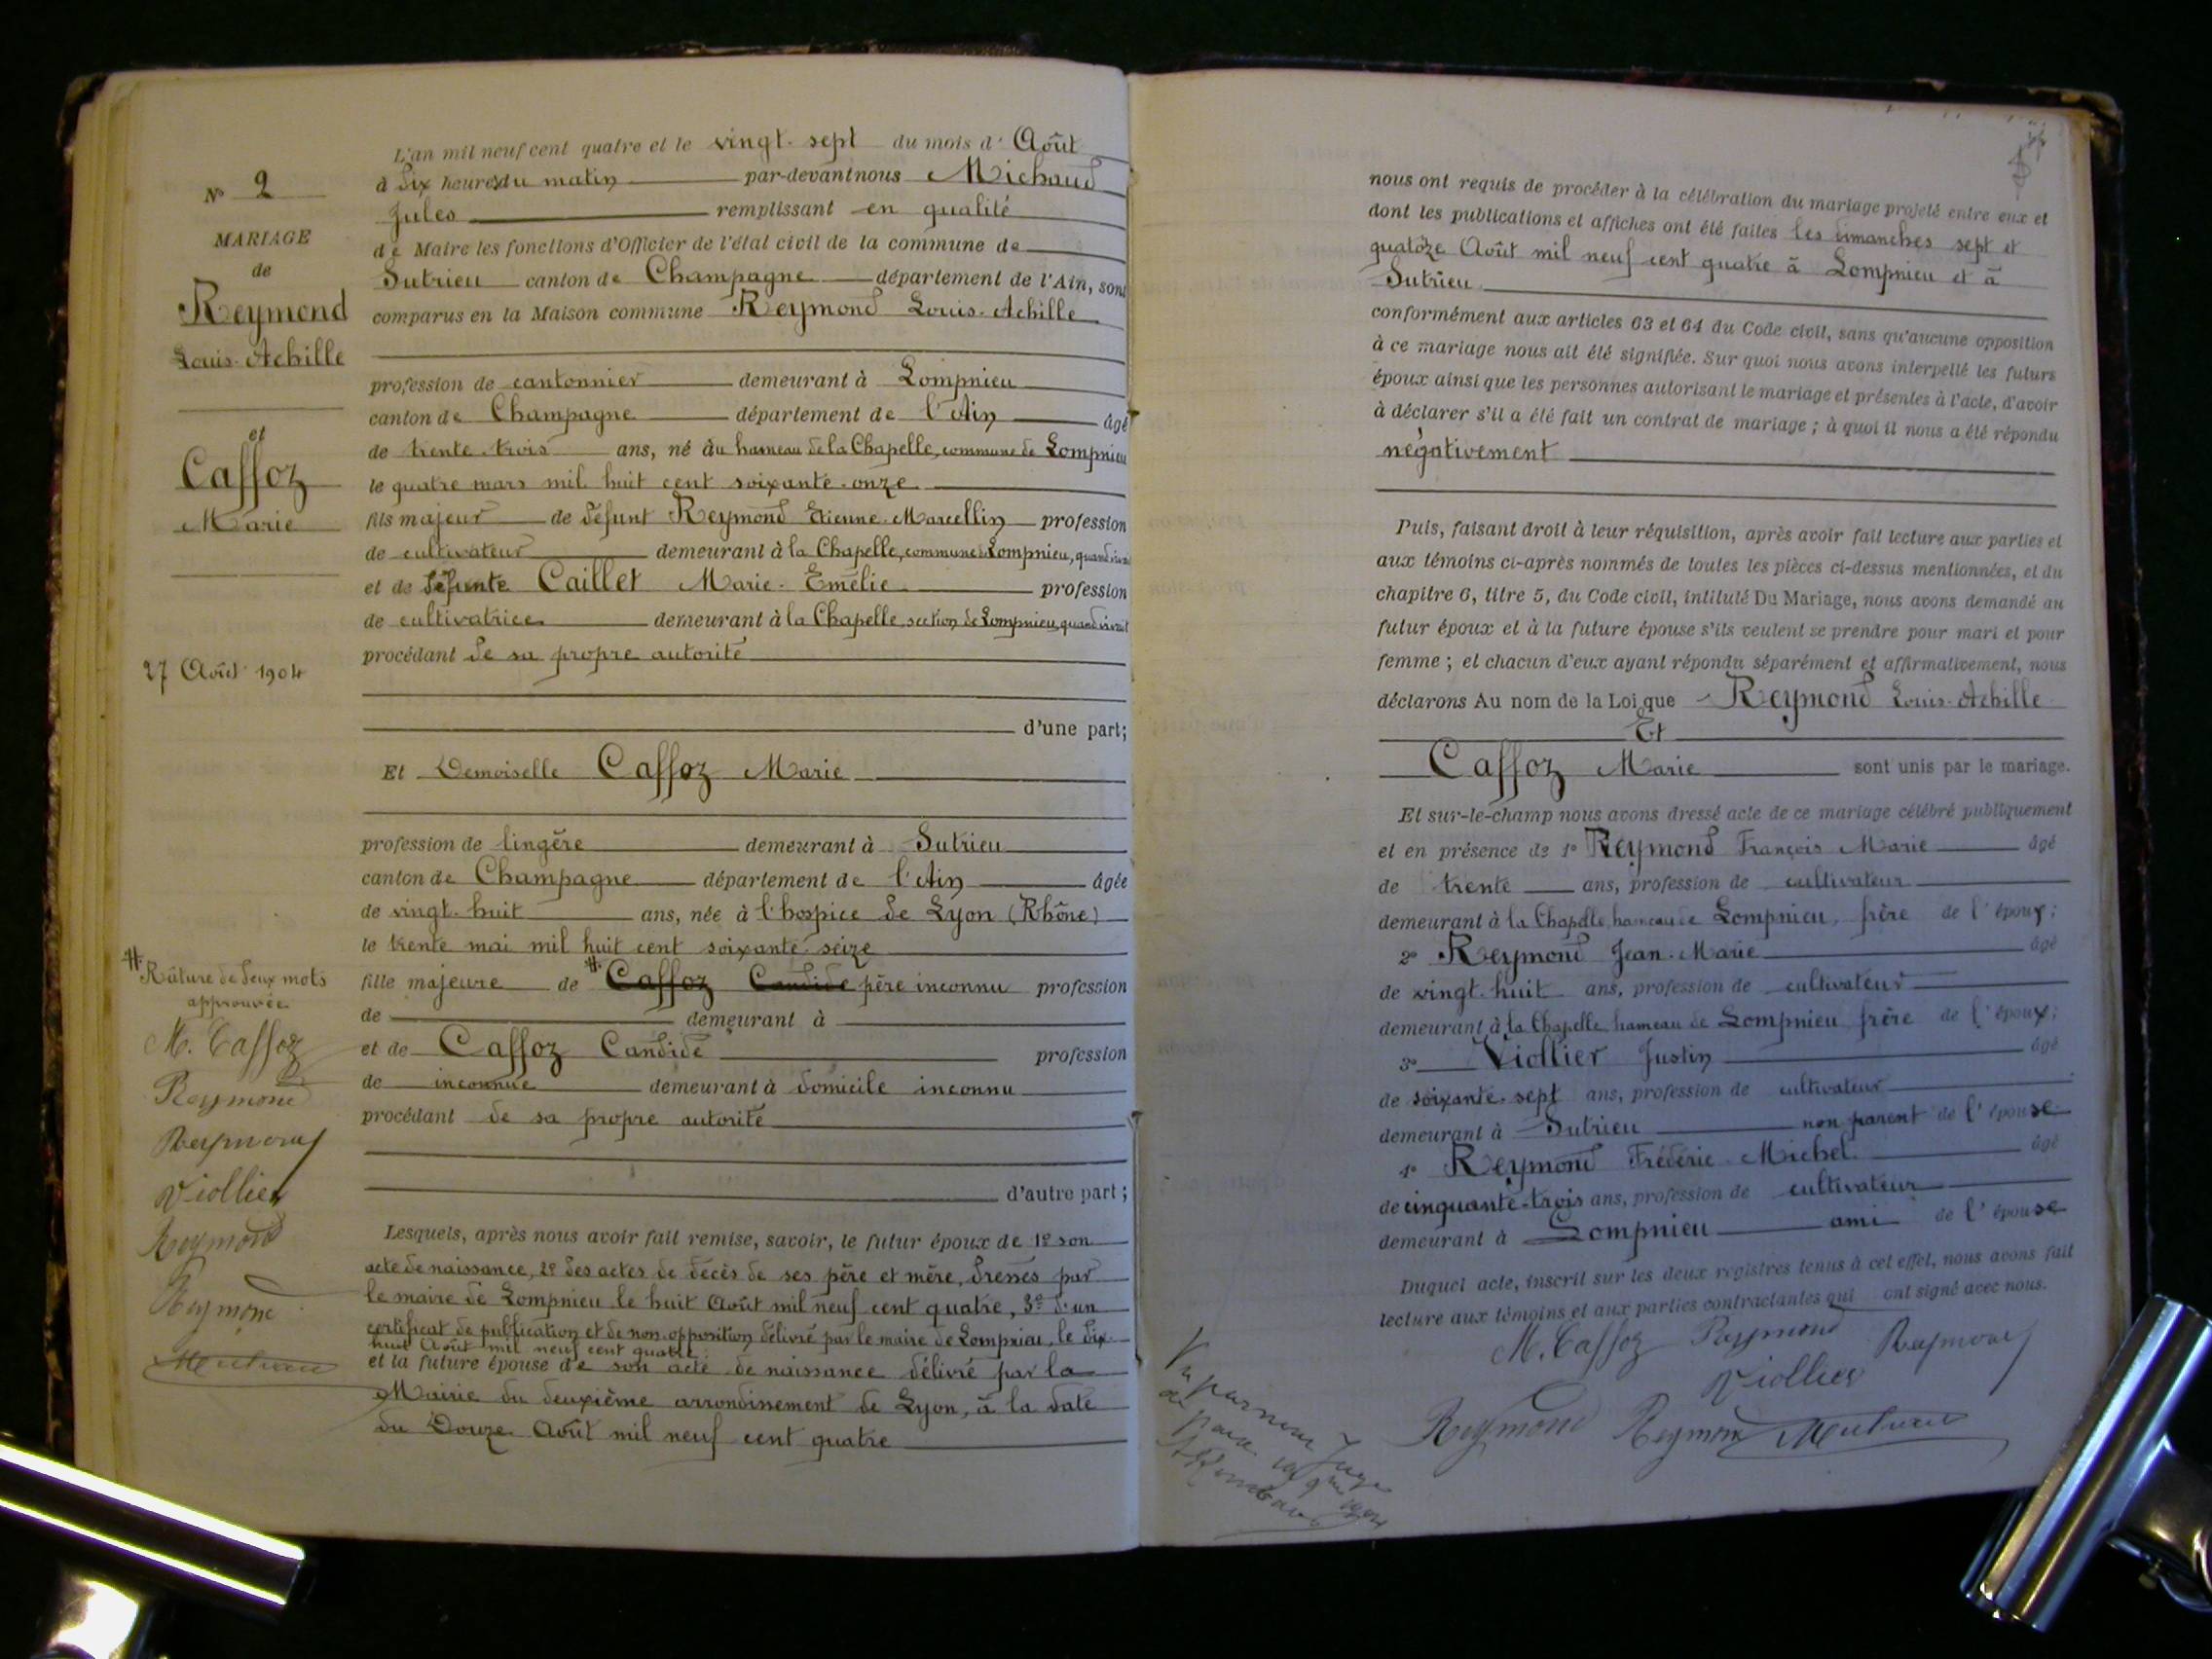 N° 2
MARIAGE
de
Reymond
Louis-Achille
et
Caffoz
Marie
27 Août 1904
# Râture de deux mots
approuvée
M. Caffoz
Reymond
Reymond
Viollier
Reymond
Reymond
L'an mil neuf cent quatre et le vingt-sept du mois d' Août
à dix heures du matin par-devant nous Michaud
Jules remplissant en qualité
de Maire les fonctions d'Officier de l'état civil de la commune de
Sutrieu canton de Champagne département de l'Ain, sont
comparus en la Maison commune Reymond Louis-Achille
profession de cantonnier demeurant à Lompnieu
canton de Champagne département de l'Ain âgé
de trente-trois ans, né au hameau de la Chapelle, commune de Lompnieu
le quatre mars mil huit cent soixante-onze
fils majeur de défunt Reymond Etienne-Marcellin profession
de cultivateur demeurant à la Chapelle, commune de Lompnieu, quand vivait
et de défunte Caillet Marie-Emélie profession
de cultivatrice demeurant à la Chapelle, section de Lompnieu, quand vivait
procédant de sa propre autorité
d'une part;
Et Demoiselle Caffoz Marie
profession de lingère demeurant à Sutrieu
canton de Champagne département de l'Ain âgée
de vingt-huit ans, née à l'hospice de Lyon (Rhône)
le trente mai mil huit cent soixante-seize
fille majeure de # Caffoz Candide père inconnu profession
de demeurant à
et de Caffoz Candide profession
de inconnue demeurant à domicile inconnu
procédant de sa propre autorité
d'autre part;
Lesquels, après nous avoir fait remise, savoir, le futur époux de 1° son
acte de naissance, 2° des actes de décès de ses père et mère, dressés par
le maire de Lompnieu le huit Août mil neuf cent quatre, 3° d'un
certificat de publication et de non-opposition délivré par le maire de Lompnieu, le dix-
huit Août mil neuf cent quatre;
et la future épouse de son acte de naissance délivré par la
Mairie du deuxième arrondissement de Lyon, à la date
du Douze Août mil neuf cent quatre
nous ont requis de procéder à la célébration du mariage projeté entre eux et
dont les publications et affiches ont été faites les dimanches sept et
quatoze Août mil neuf cent quatre à Lompnieu et à
Sutrieu.
conformément aux articles 63 et 64 du Code civil, sans qu'aucune opposition
à ce mariage nous ait été signifiée. Sur quoi nous avons interpellé les futurs
époux ainsi que les personnes autorisant le mariage et présentes à l'acte, d'avoir
à déclarer s'il a été fait un contrat de mariage; à quoi il nous a été répondu
négativement
Puis, faisant droit à leur réquisition, après avoir fait lecture aux parties et
aux témoins ci-après nommés de toutes les pièces ci-dessus mentionnées, et du
chapitre 6, titre 5, du Code civil, intitulé Du Mariage, nous avons demandé au
futur époux et à la future épouse s'ils veulent se prendre pour mari et pour
femme; et chacun d'eux ayant répondu séparément et affirmativement, nous
déclarons Au nom de la Loi que Reymond Louis-Achille
Et
Caffoz Marie sont unis par le mariage.
Et sur-le-champ nous avons dressé acte de ce mariage célébré publiquement
et en présence de 1° Reymond François Marie âgé
de trente ans, profession de cultivateur
demeurant à la Chapelle, hameau de Lompnieu, frère de l'époux;
2° Reymond Jean-Marie âgé
de vingt-huit ans, profession de cultivateur
demeurant à la Chapelle, hameau de Lompnieu frère de l'époux;
3° Viollier Justin âgé
de soixante-sept ans, profession de cultivateur
demeurant à Sutrieu non parent de l'épouse
4° Reymond Frédéric-Michel âgé
de cinquante-trois ans, profession de cultivateur
demeurant à Lompnieu ami de l'épouse
Duquel acte, inscrit sur les deux registres tenus à cet effet, nous avons fait
lecture aux témoins et aux parties contractantes qui ont signé avec nous.
M. Caffoz Reymond Reymond
Viollier
Reymond Reymond
Vu par nous Juge
de paix 1904